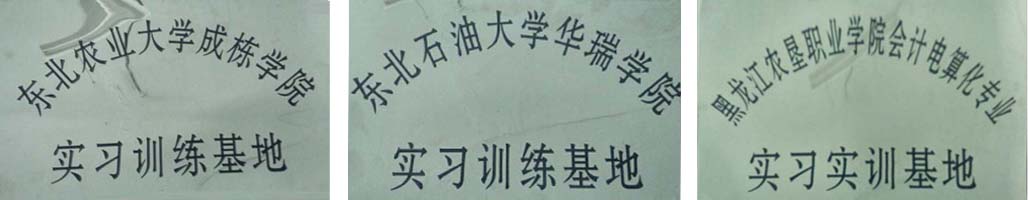 东北农业大学成栋学院
实习训练基地
东北石油大学华瑞学院
实习训练基地
黑龙江农垦职业学院会计电算化专业
实习实训基地